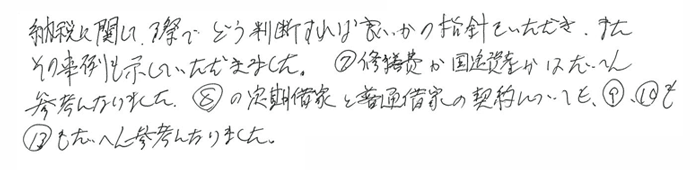 納税に関して、際で どう判断すれば良いかの指針をいただき、また
その事例も示していただきました。 ⑦修繕費か固定資産かはたいへん
参考になりました。⑧の定期借家と普通借家の契約についても、⑨、⑩も
⑫もたいへん参考になりました。